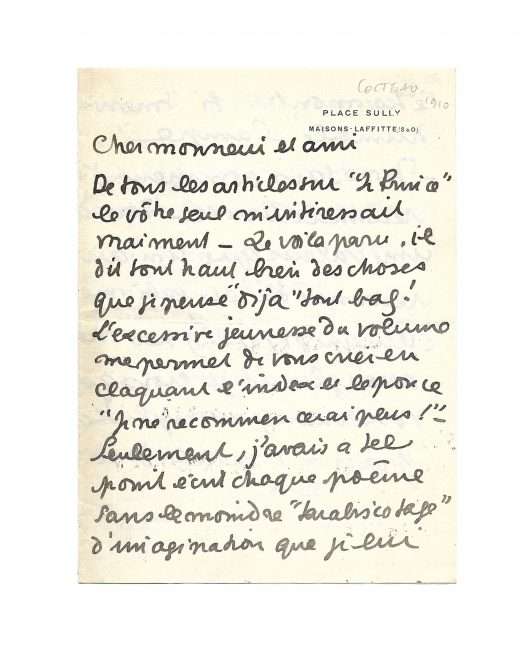 COCTEAU
1910
PLACE SULLY
MAISONS-LAFFITTE (S&O)
Cher monsieur et ami
De tous les articles sur "Le Prince"
le vôtre seul m'intéressait
vraiment – Le voilà paru, il
dit tout haut bien des choses
que je pense déjà "tout bas"!
L'excessive jeunesse du volume
me permet de vous crier en
claquant l'index et le pouce
"Je ne recommencerai plus!" –
Seulement, j'avais à tel
point écrit chaque poème
sans le moindre "tarabiscotage"
d'imagination que je lui